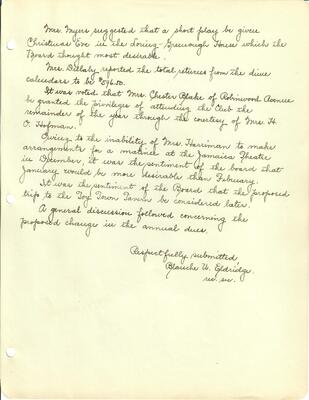 Mrs. Myers suggested that a short play be given
Christmas Eve in the Loring-Greenough House which the
Board thought most desirable.
Mrs. reported the total returns from the dime
calendars to be $96.50.
It was voted that Mrs. Chester Blake of Robinwood Avenue
be granted the privileges of attending the Club the
remainder of the year through the courtesy of Mrs. H.
O. Hofman.
Owing to the inability of Mrs. Harriman to make
arrangements for a matinee at the Jamaica Theatre
in December, it was the sentiment of the board that
January would be more desirable than February.
It was the sentiment of the Board that the proposed
trip to the Toy Town Tavern be considered later.
A general discussion followed concerning the
proposed change in the annual dues.
Respectfully submitted
Blanche W. Eldridge.
rec. sec.